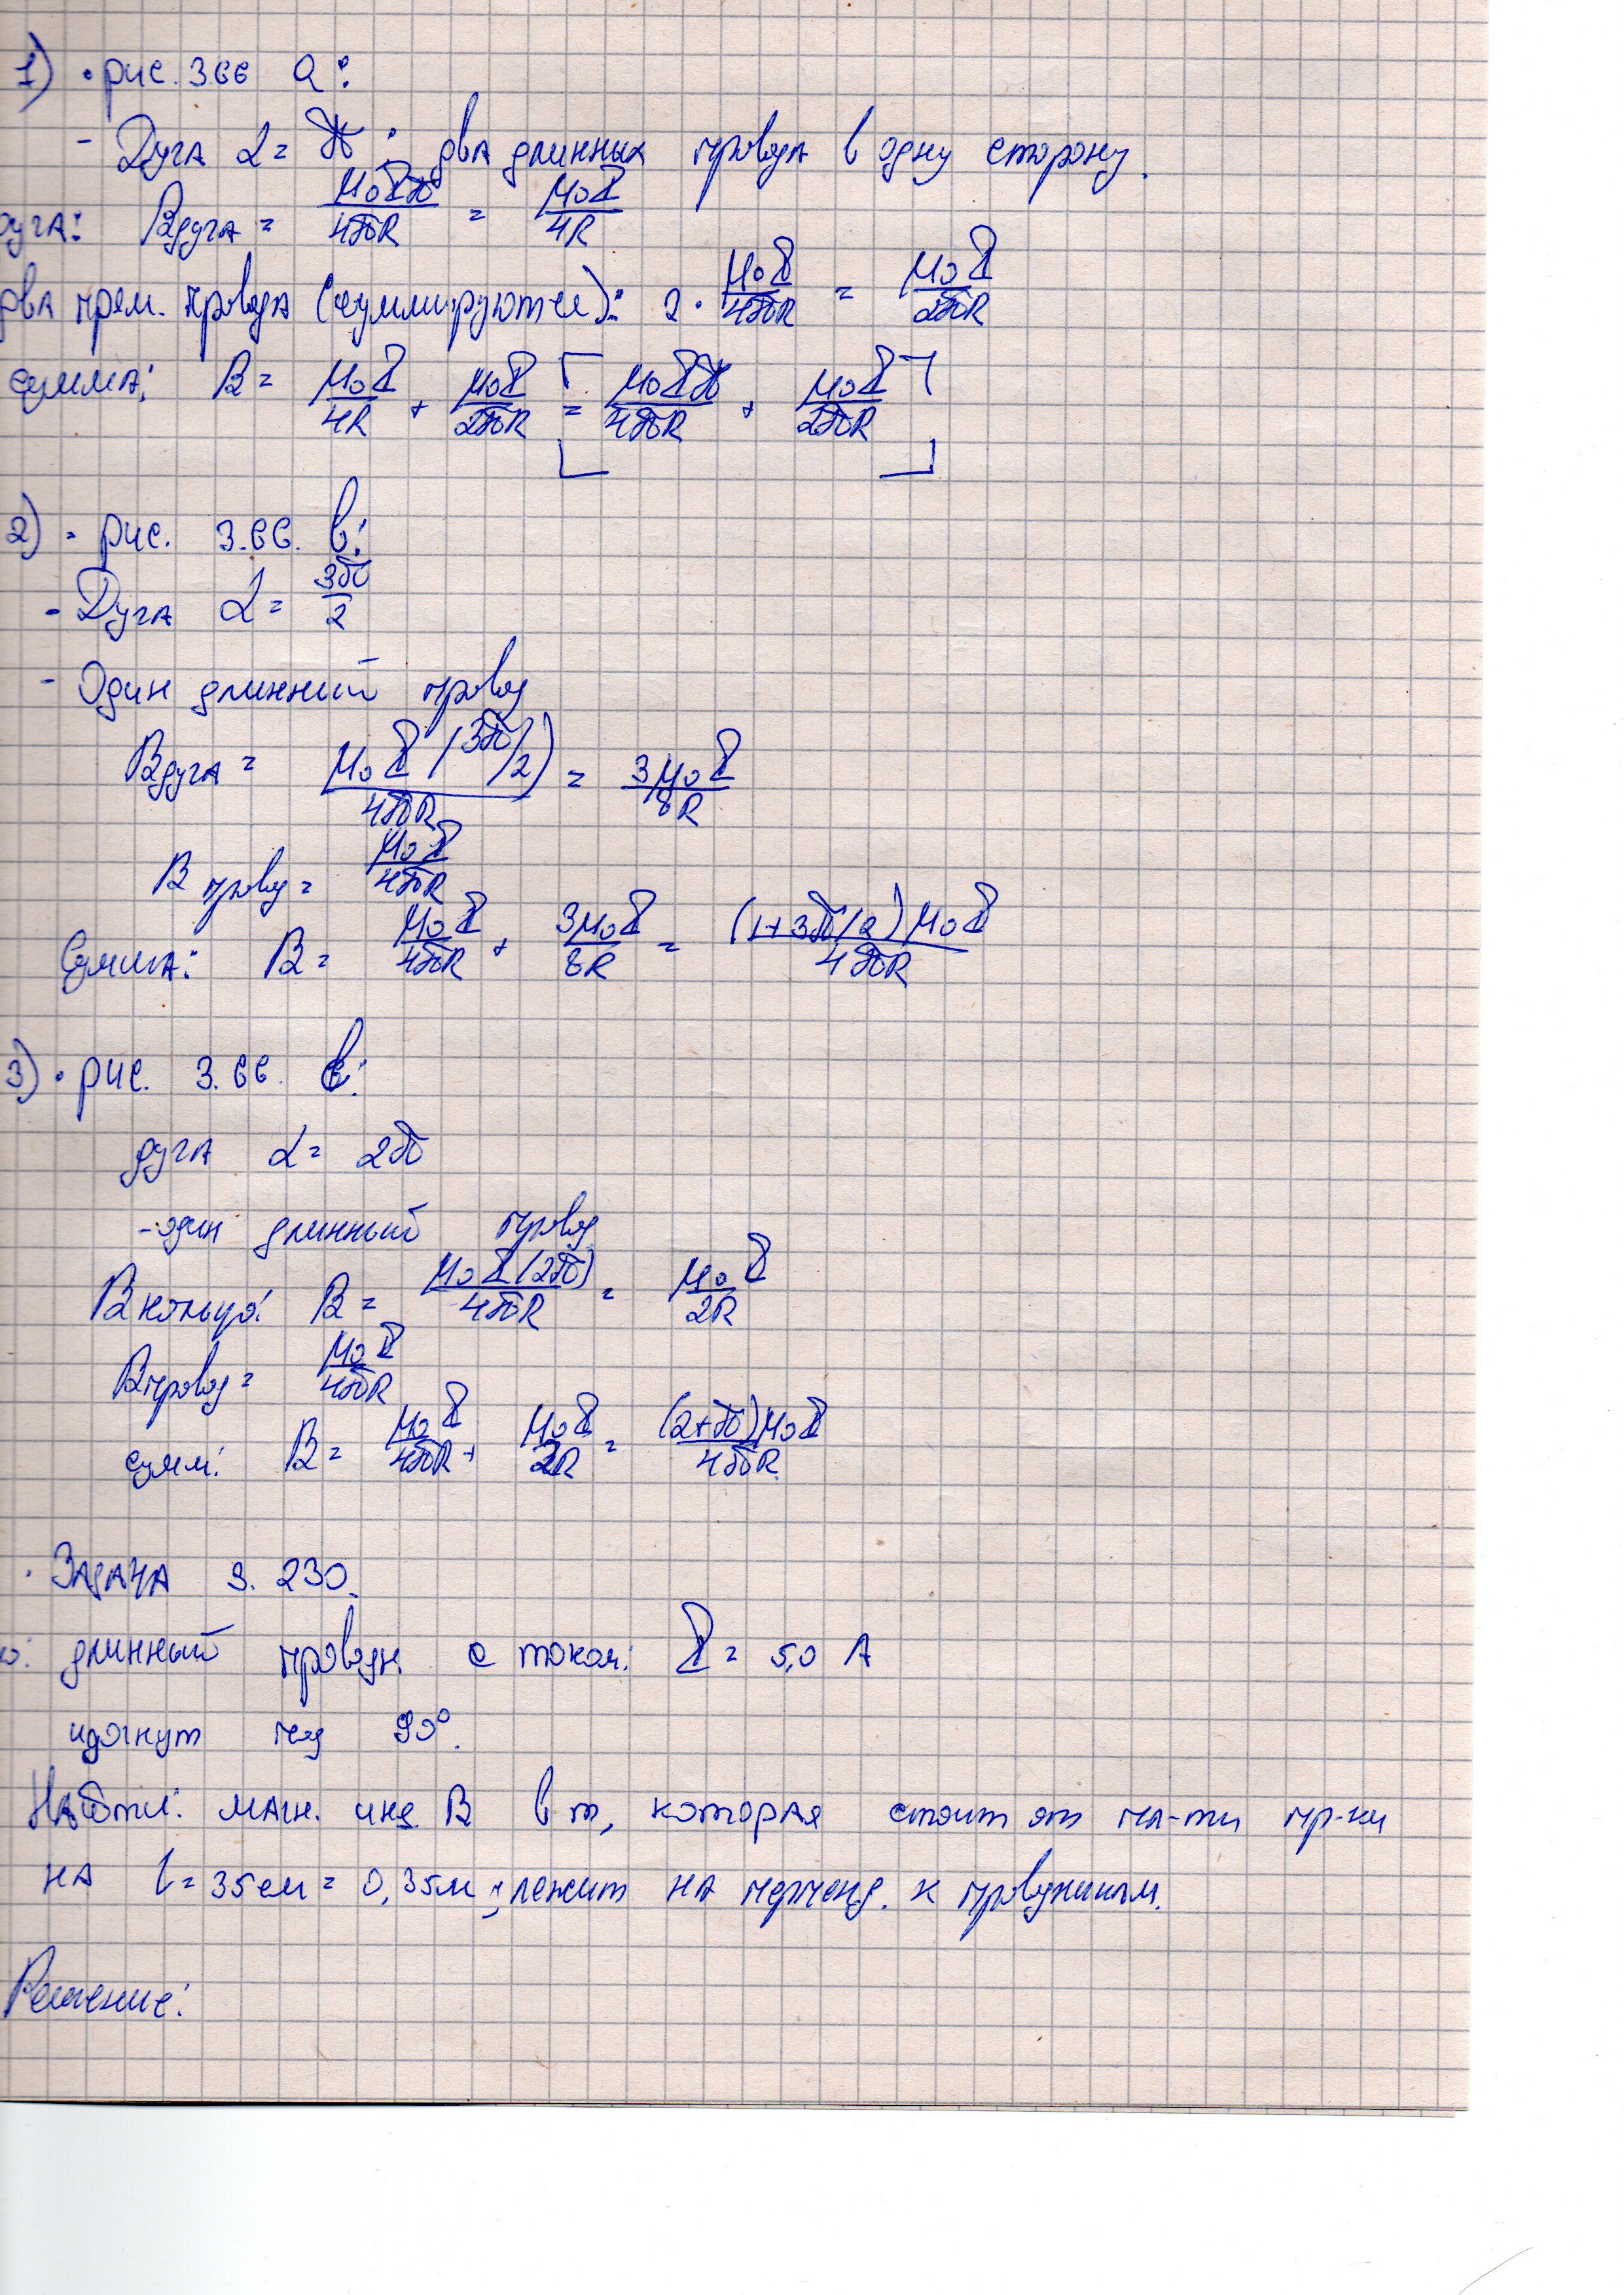 1) • рис. 3.66 а:
- Дуга α = π; два длинных провода в одну сторону.
дуга: Bдуга = μ₀Iπ/4πR = μ₀I/4R
два прям. провода (суммируются): 2 · μ₀I/4πR = μ₀I/2πR
сумма: B = μ₀I/4R + μ₀I/2πR = [μ₀Iπ/4πR + μ₀I/2πR]
2) • рис. 3.66. в:
- Дуга α = 3π/2
- Один длинный провод
Bдуга = μ₀I(3π/2)/4πR = 3μ₀I/8R
B провод = μ₀I/4πR
Сумма: B = μ₀I/4πR + 3μ₀I/8R = (1+3π/2)μ₀I/4πR
3) • рис. 3.66.
дуга α = 2π
- один длинный провод
Bкольцо: B = μ₀I(2π)/4πR = μ₀I/2R
Bпровод = μ₀I/4πR
сумм: B = μ₀I/4πR + μ₀I/2R = (2+π)μ₀I/4πR
• Задача 3. 230.
длинный провод с током: I = 5,0 А
изогнут под 90°.
Найти: магн. инд. B в т, которая стоит от пл-ти пр-ка
на l = 35 см = 0,35м и лежит на перпенд. к проводникам.
Решение: